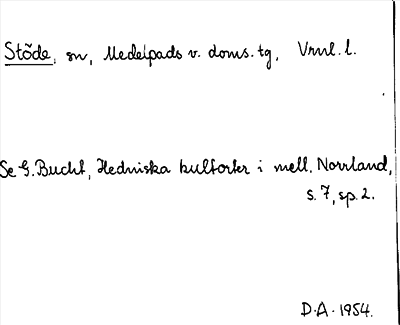 Stöde, sn, Medelpads v. doms. tg, Vrnl. l.
Se G. Bucht, Hedniska kultorter i mell. Norrland,
s. 7, sp. 2.
D.A. 1954.